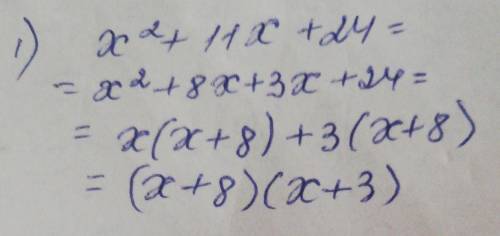 1) x²+11x+24=
=x²+8x+3x+24=
= x(x+8)+3(x+8)
= (x+8)(x+3)